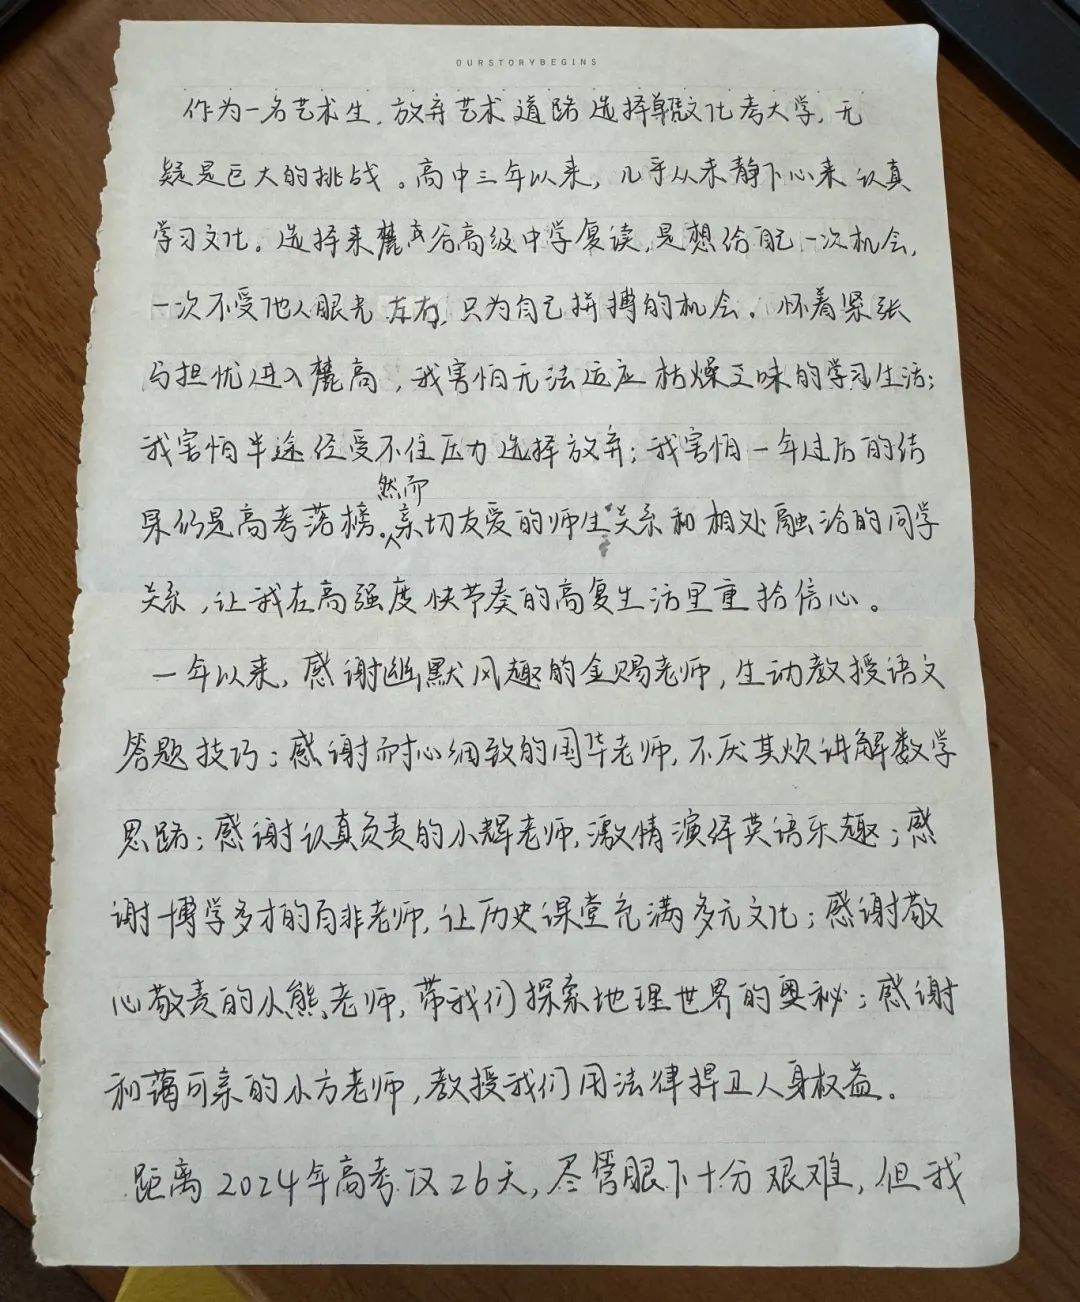 OURSTORYBEGINS
作为一名艺术生,放弃艺术道路选择单凭文化考大学,无
疑是巨大的挑战。高中三年以来,几乎从未静下心来认真
学习文化。选择来麓高谷高级中学复读,是想给自己一次机会,
一次不受他人眼光左右,只为自己拼搏的机会。怀着紧张
与担忧进入麓高,我害怕无法适应枯燥乏味的学习生活;
我害怕半途经受不住压力选择放弃;我害怕一年过后的结
果仍是高考落榜。然而亲切友爱的师生关系和相处融洽的同学
关系,让我在高强度快节奏的高复生活里重拾信心。
一年以来,感谢幽默风趣的金赐老师,生动教授语文
答题技巧;感谢耐心细致的国华老师,不厌其烦讲解数学
思路;感谢认真负责的小辉老师,激情演绎英语乐趣;感
谢博学多才的百非老师,让历史课堂充满多元文化;感谢敬
心敬责的小熊老师,带我们探索地理世界的奥秘;感谢
和蔼可亲的小方老师,教授我们用法律捍卫人身权益。
距离2024年高考仅26天,尽管眼下十分艰难,但我